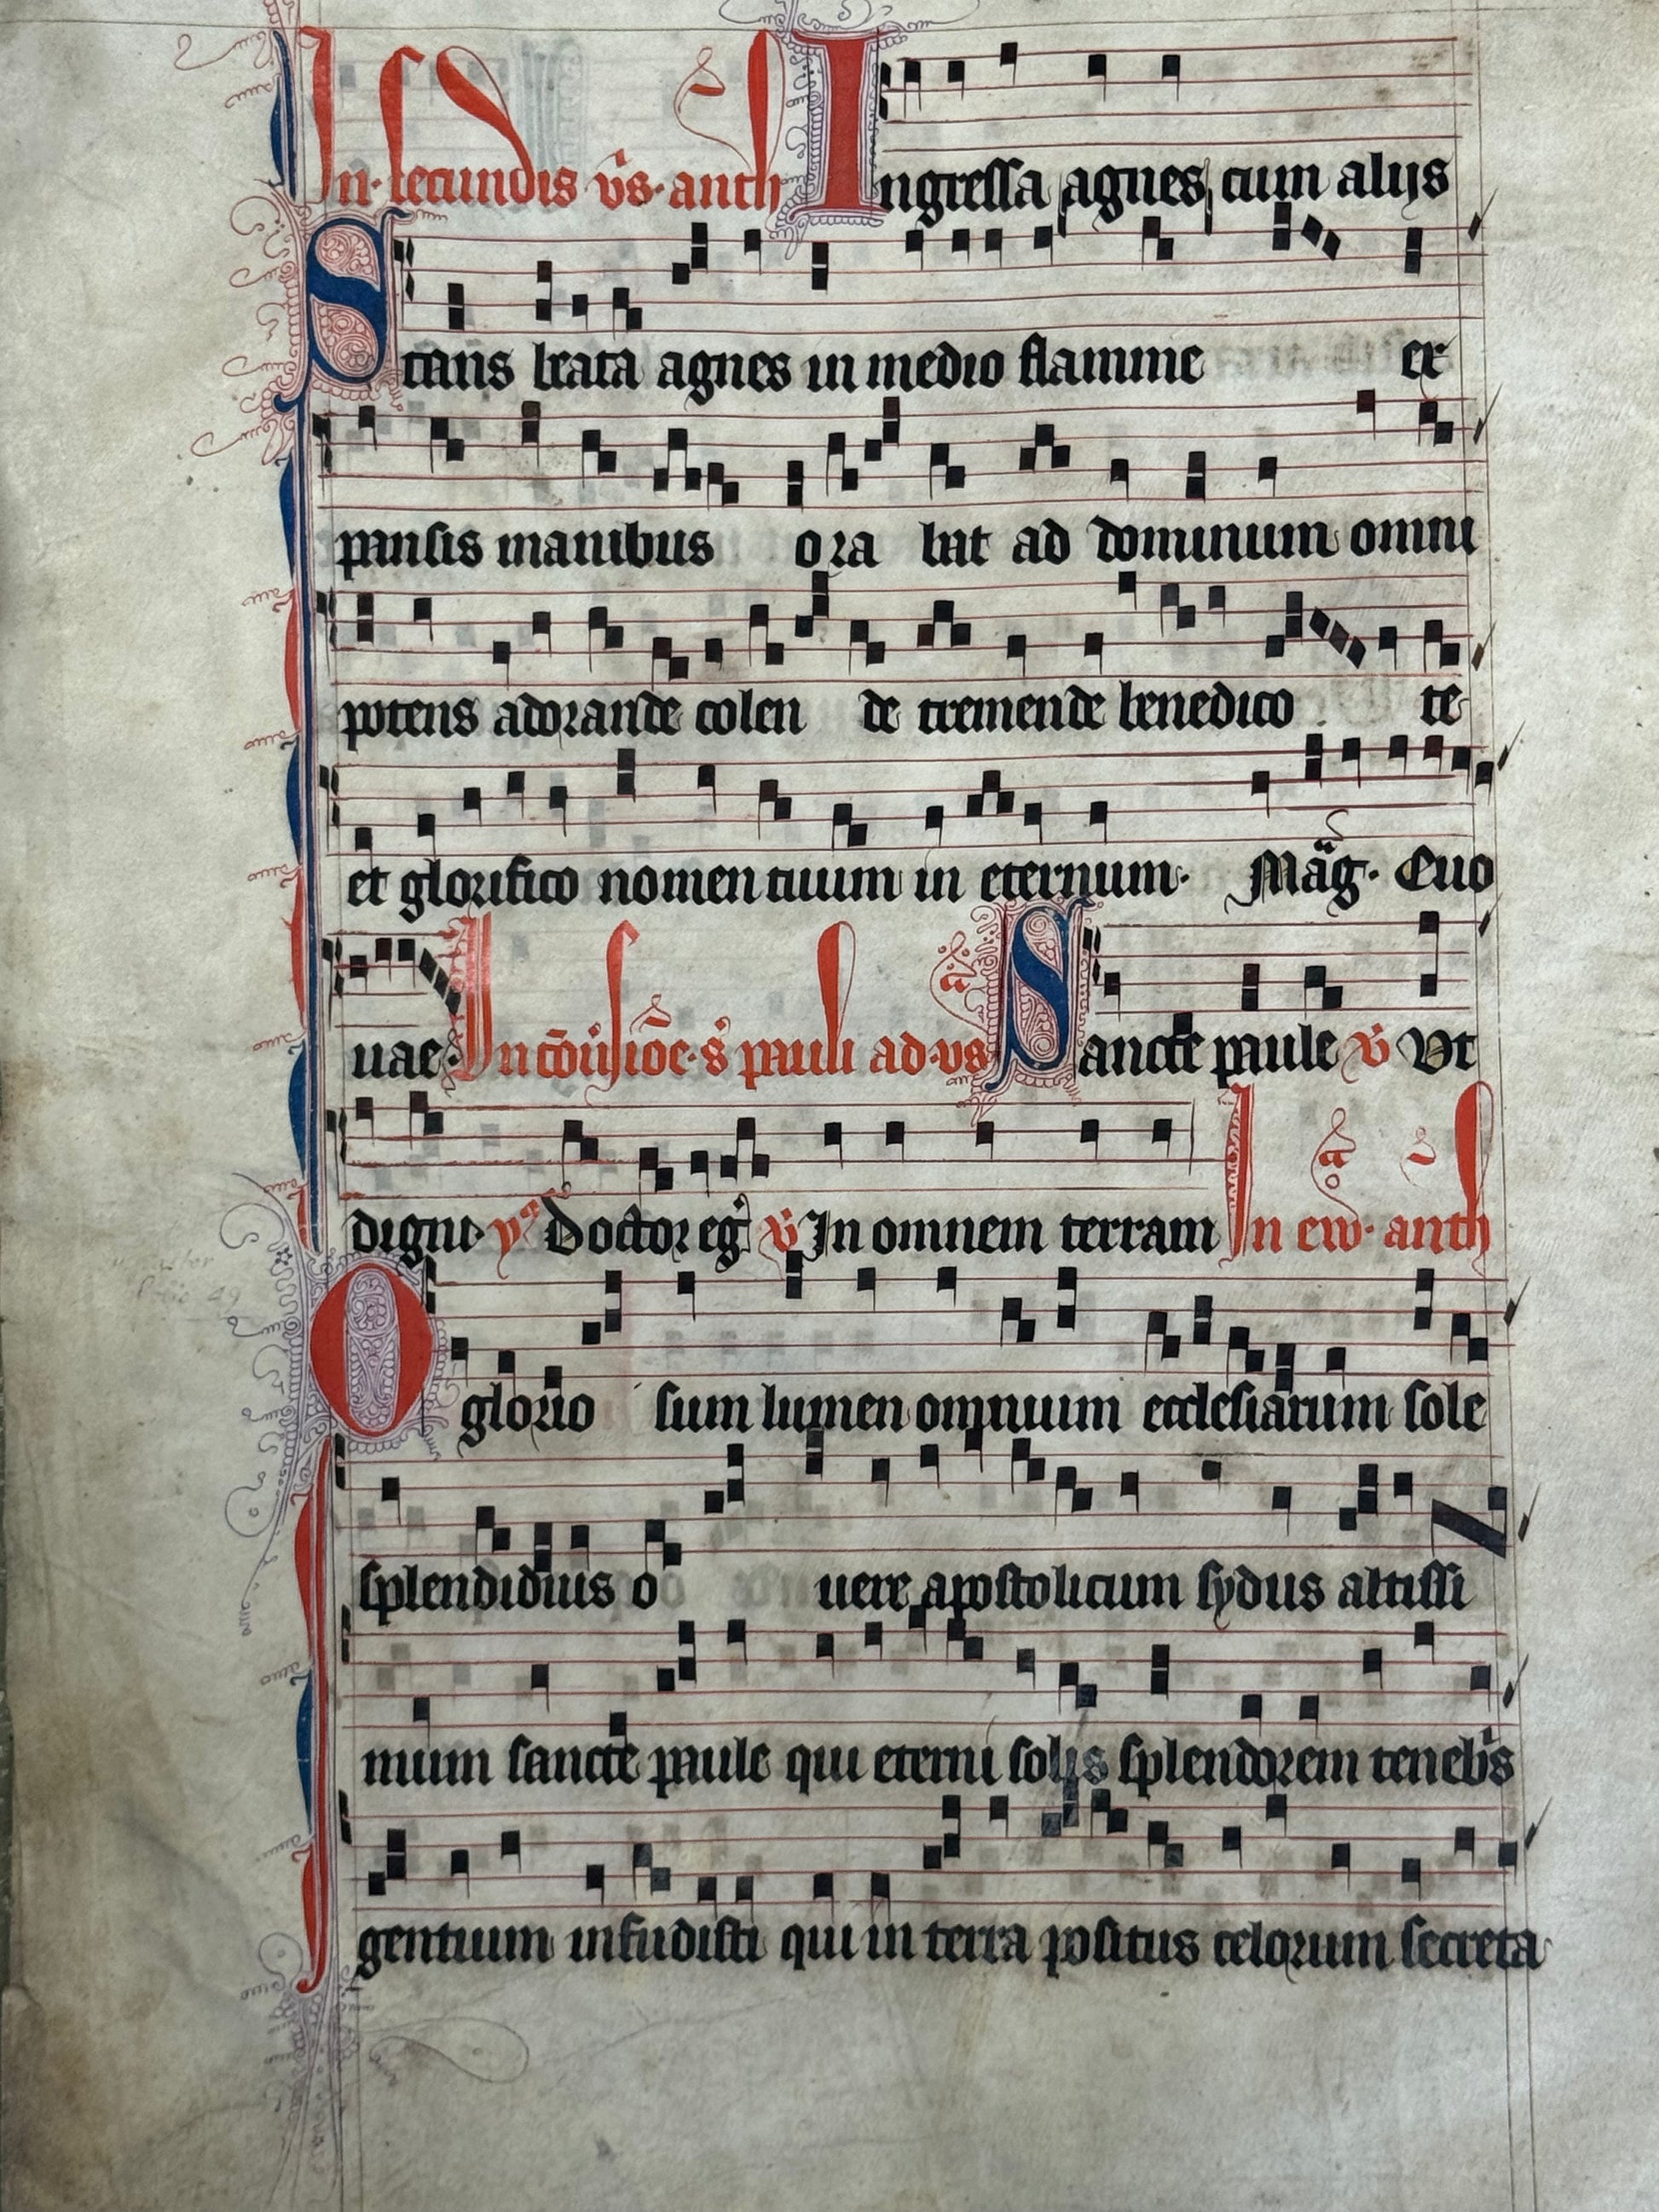 In secundis v̄s. anth Ingressa agnes cum alijs
Stans beata agnes in medio flamme ex
pansis manibus ora bat ad dominum omni
potens adorande colen de tremende benedico te
et glorifico nomen tuum in eternum. Mãg. Euo
uae. In cōūsiōe. s̄ pauli ad. vs Sancte paule v̄ Vt
digni. yᵒ Doctor eg̃ v̄ In omnem terram In ew. anth
O glorio sum lumen omnium ecclesiarum sole
splendidius o uere apostolicum sydus altissi
mum sancte paule qui eterni solis splendorem tenebs̄
gentium infudisti qui in terra positus celorum secreta